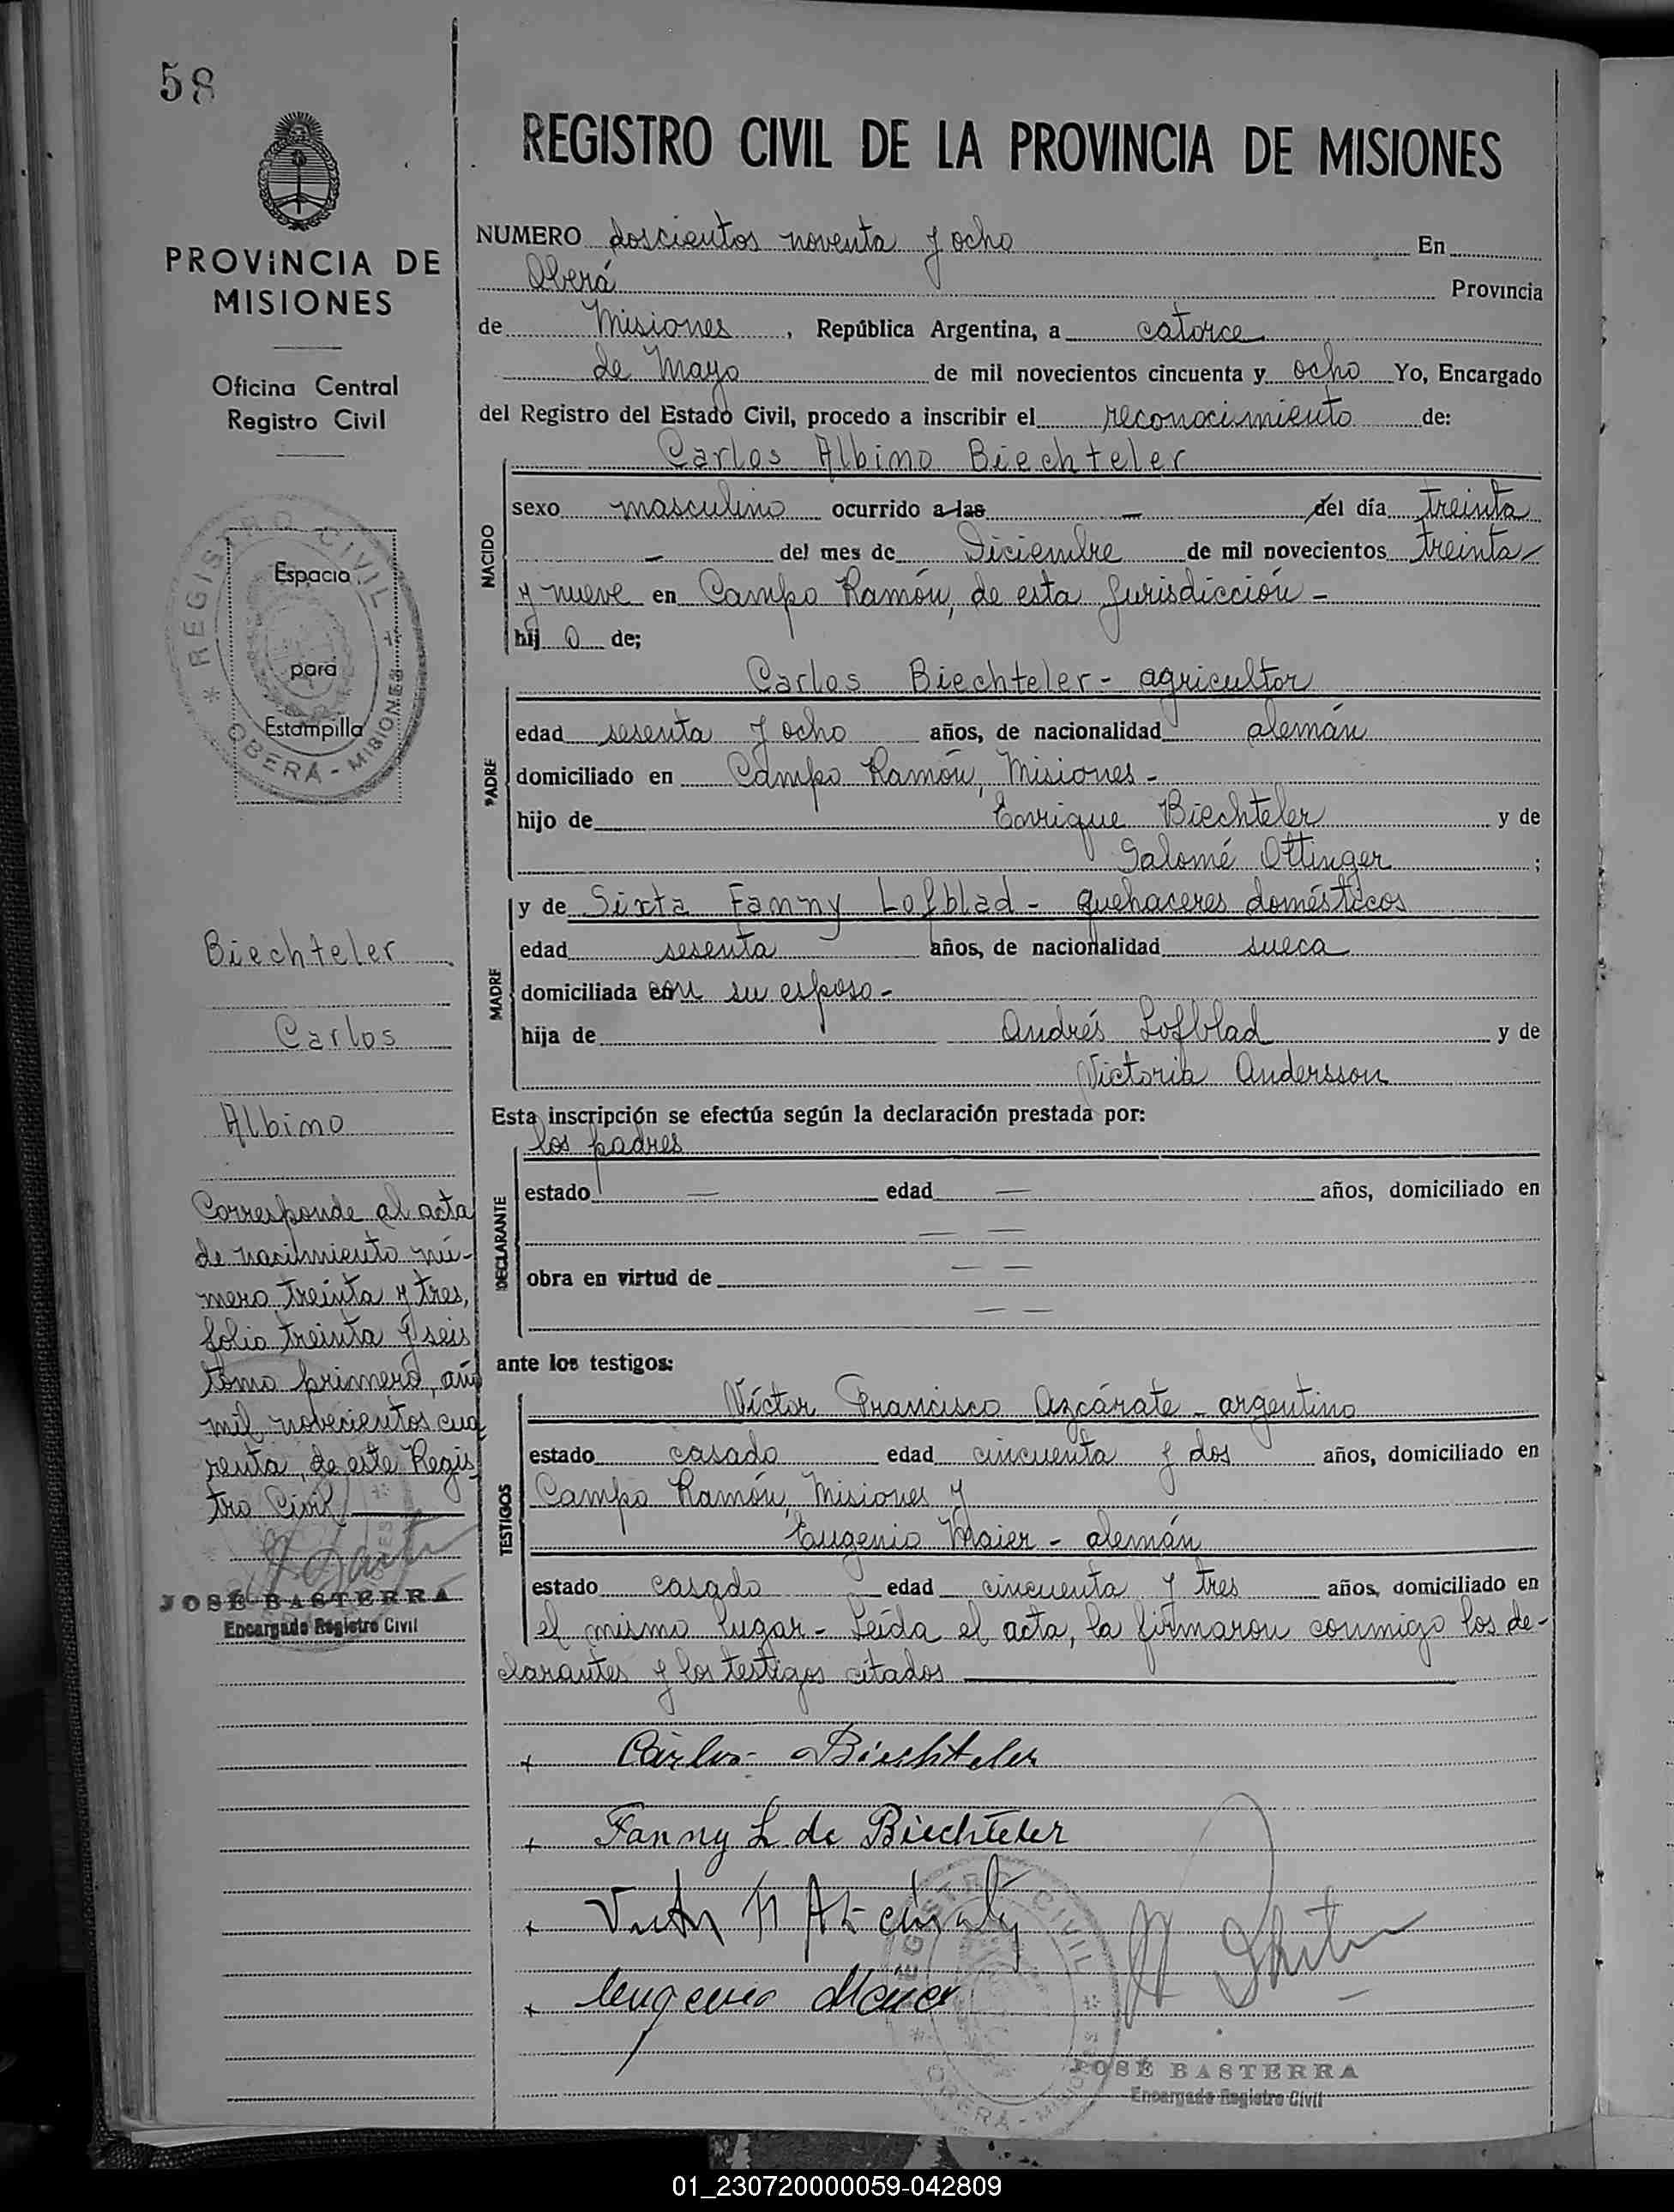 58
REGISTRO CIVIL DE LA PROVINCIA DE MISIONES
PROVINCIA DE
MISIONES
Oficina Central
Registro Civil
REGISTRO CIVIL
OBERÁ - MISIONES
Espacio
para
Estampilla
Biechteler
Carlos
Albino
Corresponde al acta
de nacimiento nú-
mero treinta y tres,
folio treinta y seis
tomo primero, año
mil novecientos cua
renta, de este Regis
tro Civil
JOSÉ BASTERRA
Encargado Registro Civil
NUMERO doscientos noventa y ocho En
Oberá Provincia
de Misiones, República Argentina, a catorce
de Mayo de mil novecientos cincuenta y ocho Yo, Encargado
del Registro del Estado Civil, procedo a inscribir el reconocimiento de:
Carlos Albino Biechteler
NACIDO
sexo masculino ocurrido a las — del día treinta
— del mes de Diciembre de mil novecientos treinta
y nueve en Campo Ramón, de esta Jurisdicción -
hijo de;
PADRE
Carlos Biechteler - agricultor
edad sesenta y ocho años, de nacionalidad alemán
domiciliado en Campo Ramón, Misiones -
hijo de Enrique Biechteler y de
Salomé Ottinger ;
MADRE
y de Sixta Fanny Lofblad - quehaceres domésticos
edad sesenta años, de nacionalidad sueca
domiciliada con su esposo -
hija de Andrés Lofblad y de
Victoria Andersson
Esta inscripción se efectúa según la declaración prestada por:
DECLARANTE
los padres
estado — edad — años, domiciliado en
— —
obra en virtud de — —
— —
ante los testigos:
TESTIGOS
Víctor Francisco Azcárate - argentino
estado casado edad cincuenta y dos años, domiciliado en
Campo Ramón, Misiones y
Eugenio Maier - alemán
estado casado edad cincuenta y tres años, domiciliado en
el mismo lugar - Leída el acta, la firmaron conmigo los de-
clarantes y los testigos citados
Carlos Biechteler
Fanny L de Biechteler
Eugenio Maier
REGISTRO CIVIL
OBERÁ - MISIONES
JOSÉ BASTERRA
Encargado Registro Civil
01_230720000059-042809